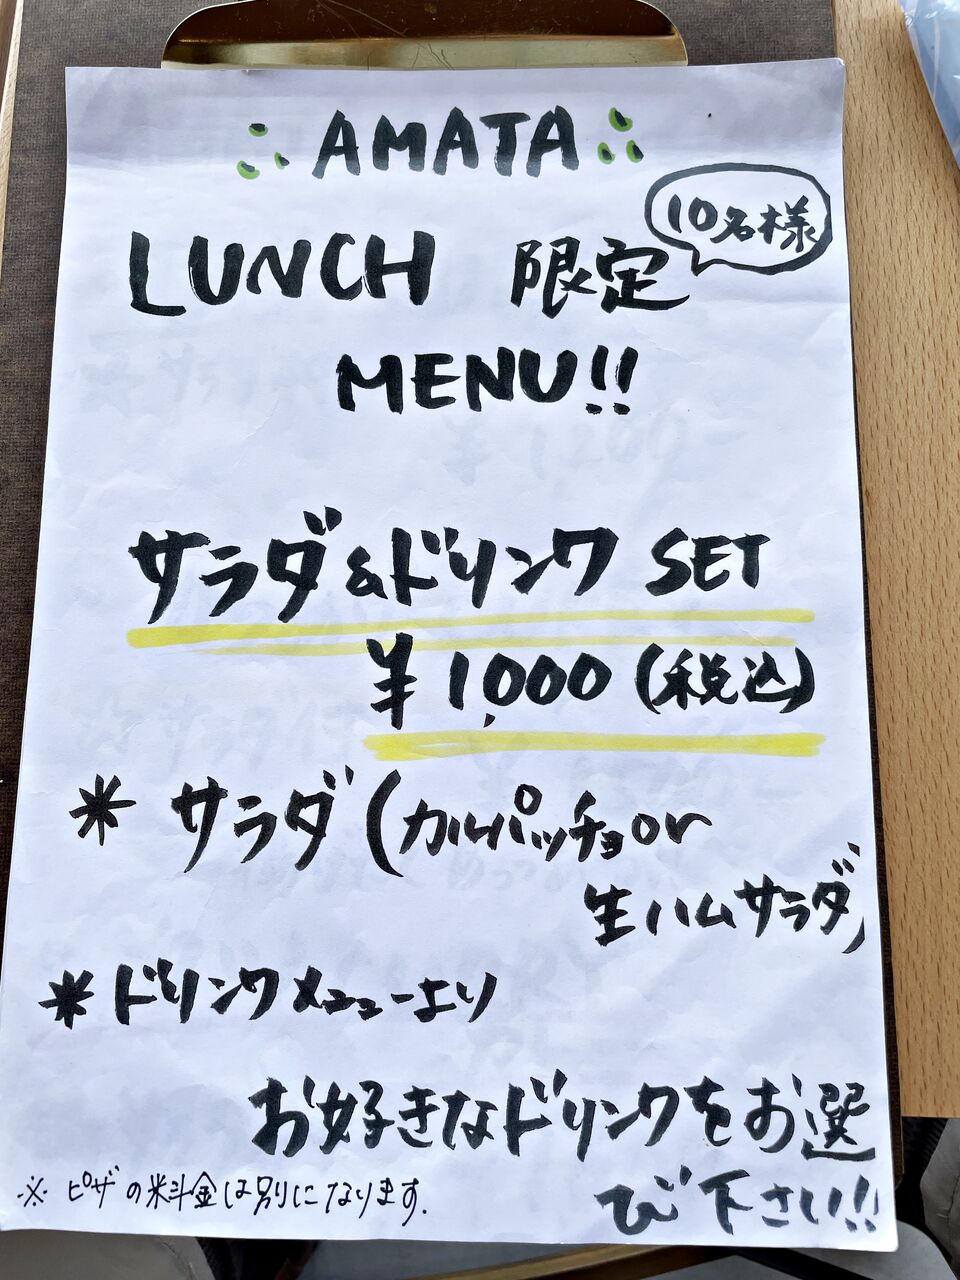 AMATA
10名様
LUNCH 限定
MENU!!
サラダ&ドリンク SET
¥1,000(税込)
* サラダ(カルパッチョor
生ハムサラダ)
* ドリンクメニューより
お好きなドリンクをお選
び下さい!!
※ ピザの料金は別になります.